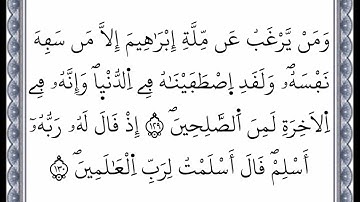 وَمَنْ يَّرْغَبُ عَن مِّلَّةِ إِبْرَٰهِيمَ إِلَّا مَن سَفِهَ
نَفْسَهُۥۖ وَلَقَدِ اِ۪صْطَفَيْنَٰهُ فِے اِ۬لدُّنْي۪اۖ وَإِنَّهُۥ فِے
اِ۬لَاخِرَةِ لَمِنَ اَ۬لصَّٰلِحِينَۖ ١٢٩ إِذْ قَالَ لَهُۥ رَبُّهُۥٓ
أَسْلِمْۖ قَالَ أَسْلَمْتُ لِرَبِّ اِ۬لْعَٰلَمِينَۖ ١٣٠